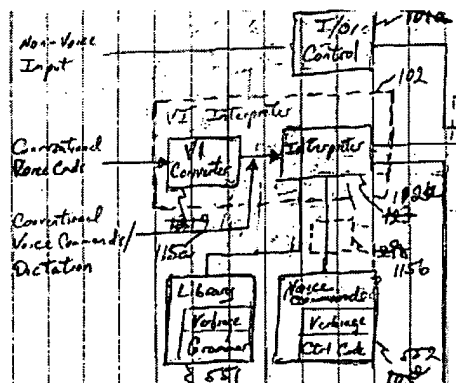 Non-Voice
Input
I/O
Control
102
VI Interpreter
Conventional
VI
Converter
Interpreter
Conventional
Voice Commands/
Dictation
115a
115b
Library
Verbiage
Grammar
551
Voice
Commands
Verbiage
Ctrl Code
552